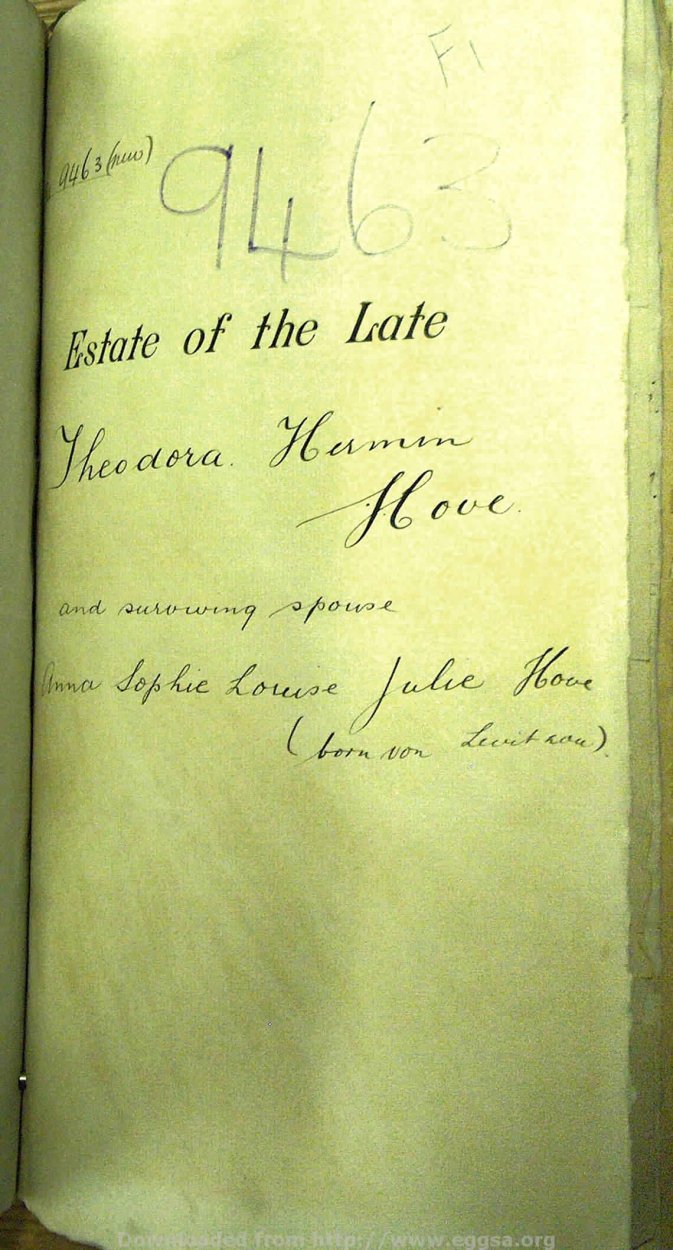 F1
9463 (new)
9463
Estate of the Late
Theodora. Hermin
Hove.
and surviving spouse
Anna Sophie Louise Julie Hove
(born von
Downloaded from http://www.eggsa.org